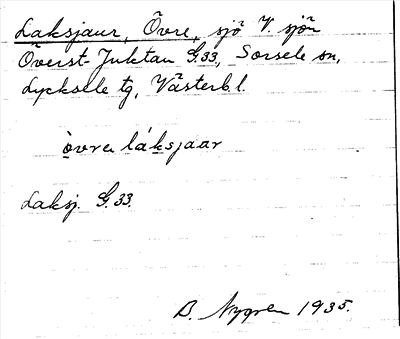 Laksjaur, Övre, sjö V. sjön
Överst-Juktan G.33, Sorsele sn,
Lycksele tg, Västerb.l.
òvrεε láksjaar
Laksj. G.33.
B. Nygren 1935.